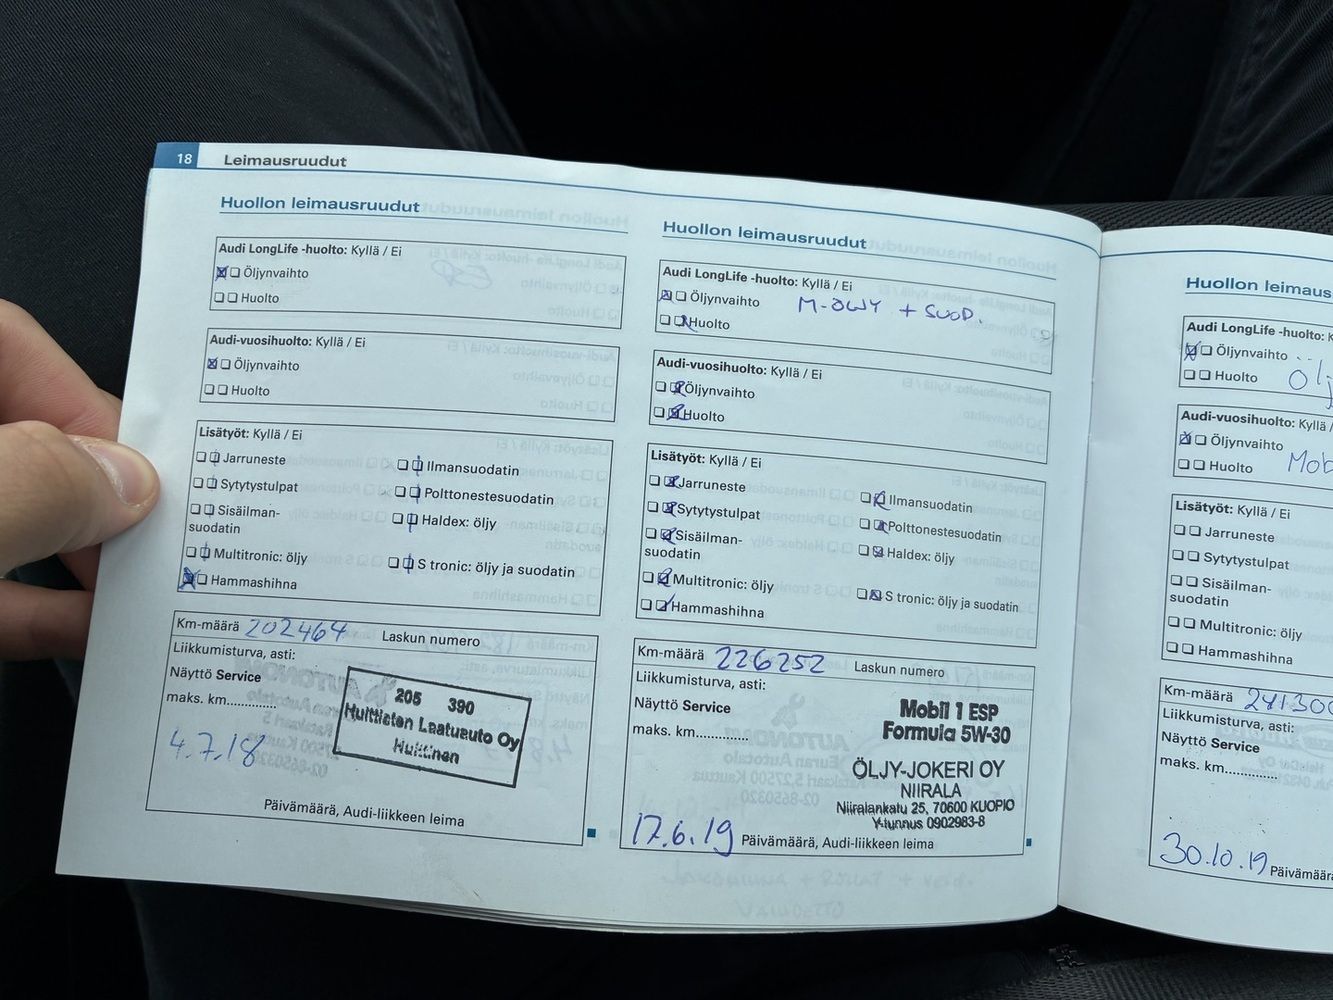 18 Leimausruudut
Huollon leimausruudut
Audi LongLife -huolto: Kyllä / Ei
Öljynvaihto
Huolto
Audi-vuosihuolto: Kyllä / Ei
Öljynvaihto
Huolto
Lisätyöt: Kyllä / Ei
Jarruneste
Ilmansuodatin
Sytytystulpat
Polttonestesuodatin
Sisäilman-
suodatin
Haldex: öljy
Multitronic: öljy
S tronic: öljy ja suodatin
Hammashihna
Km-määrä 202464 Laskun numero
Liikkumisturva, asti:
Näyttö Service
maks. km.............
205 390
Huittisten Laatuauto Oy
Huittinen
4.7.18
Päivämäärä, Audi-liikkeen leima
Huollon leimausruudut
Audi LongLife -huolto: Kyllä / Ei
Öljynvaihto M-ÖLJY + SUOD.
Huolto
Audi-vuosihuolto: Kyllä / Ei
Öljynvaihto
Huolto
Lisätyöt: Kyllä / Ei
Jarruneste
Ilmansuodatin
Sytytystulpat
Polttonestesuodatin
Sisäilman-
suodatin
Haldex: öljy
Multitronic: öljy
S tronic: öljy ja suodatin
Hammashihna
Km-määrä 226252 Laskun numero
Liikkumisturva, asti:
Näyttö Service
maks. km.............
Mobil 1 ESP
Formula 5W-30
ÖLJY-JOKERI OY
NIIRALA
Niiralankatu 25, 70600 KUOPIO
Y-tunnus 0902983-8
17.6.19 Päivämäärä, Audi-liikkeen leima
Huollon leimaus
Audi LongLife -huolto: K
Öljynvaihto
Huolto
Audi-vuosihuolto: Kyllä /
Öljynvaihto
Huolto
Lisätyöt: Kyllä / Ei
Jarruneste
Sytytystulpat
Sisäilman-
suodatin
Multitronic: öljy
Hammashihna
Km-määrä 241300
Liikkumisturva, asti:
Näyttö Service
maks. km.............
30.10.19 Päivämäärä